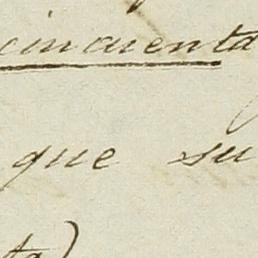 cincuenta
que su
ta)